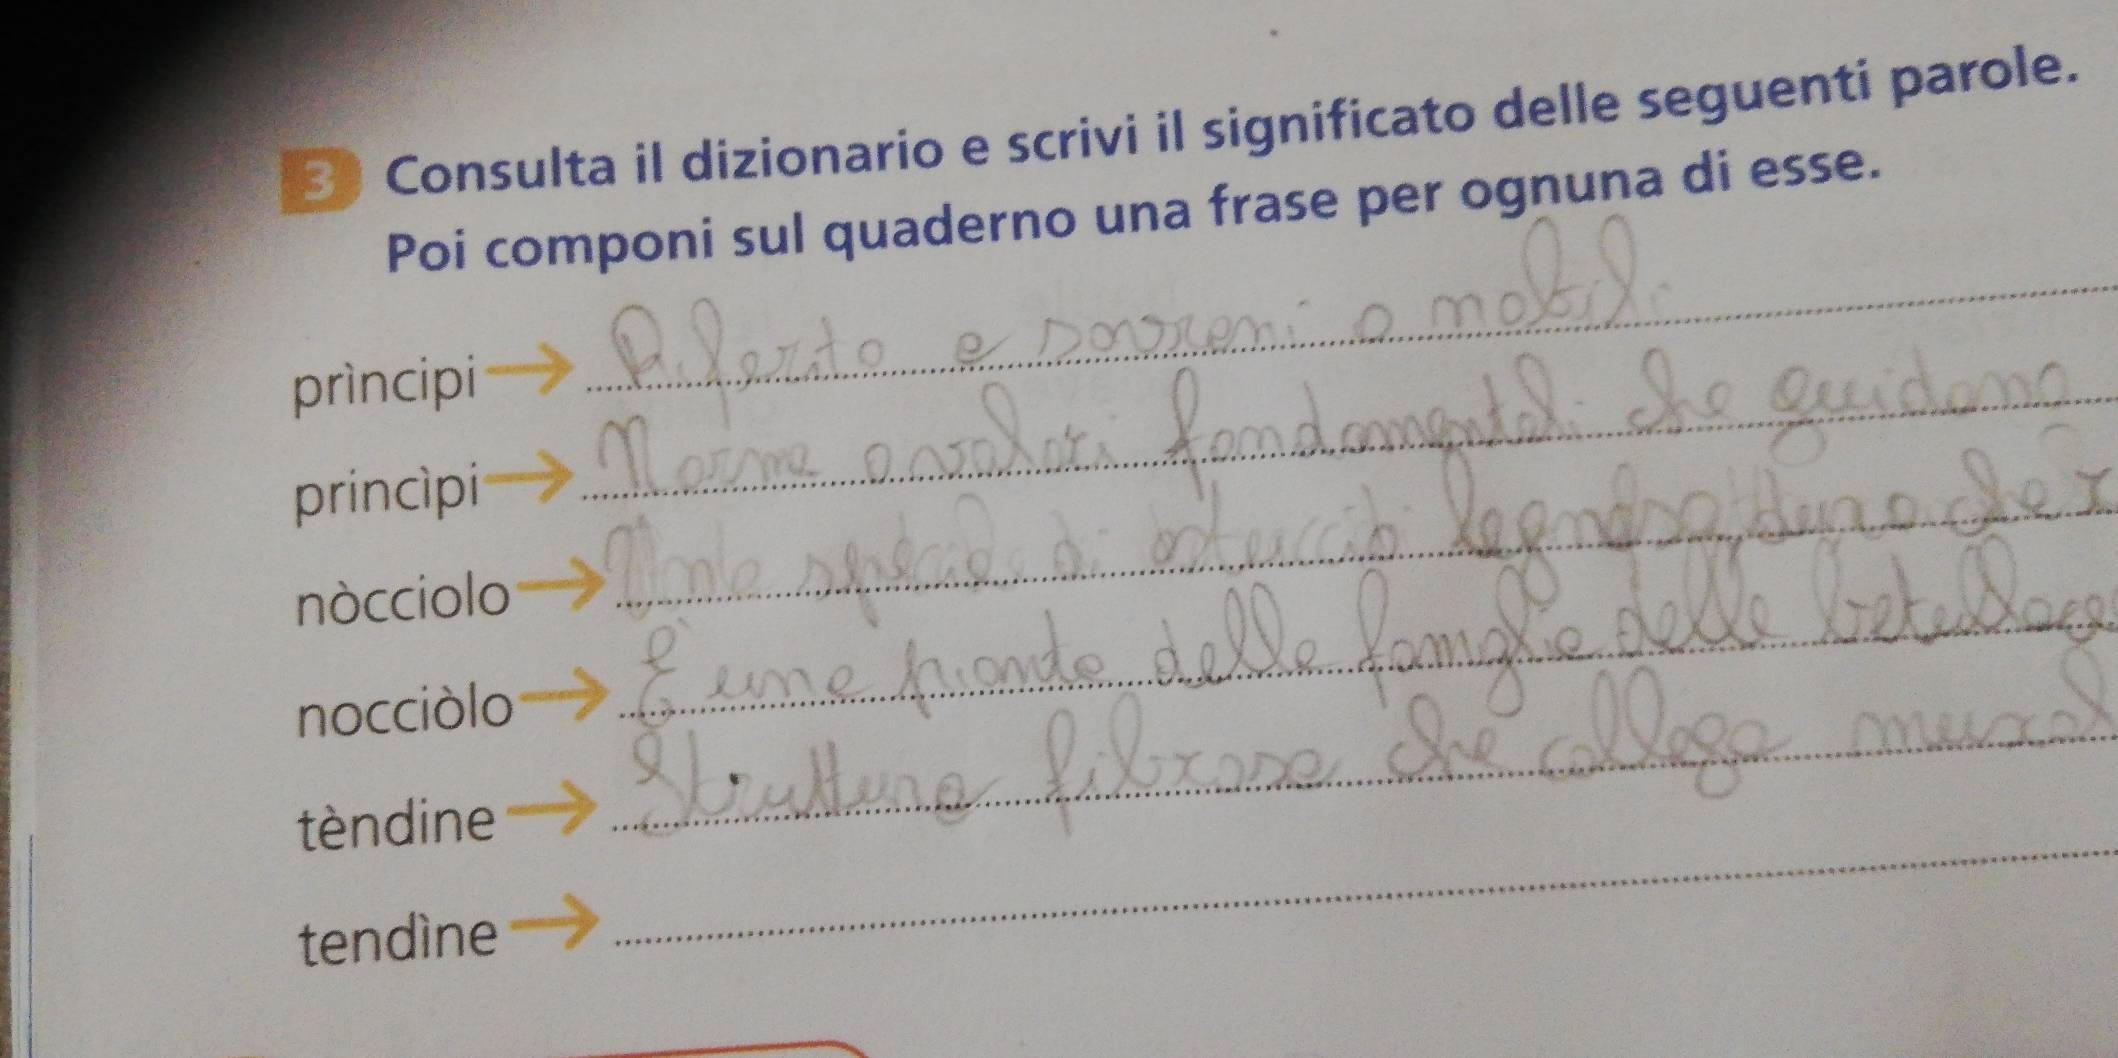 3 Consulta il dizionario e scrivi il significato delle seguenti parole.
Poi componi sul quaderno una frase per ognuna di esse.
prìncipi → Riferito a sovrani o nobili
princìpi → Norma o valori fondamentali che guidano
nòcciolo → Una specie di astuccio legnoso e duro che r
nocciòlo → È una pianta della famiglia delle betullace
tèndine → Struttura fibrosa che collega muscol
tendìne →